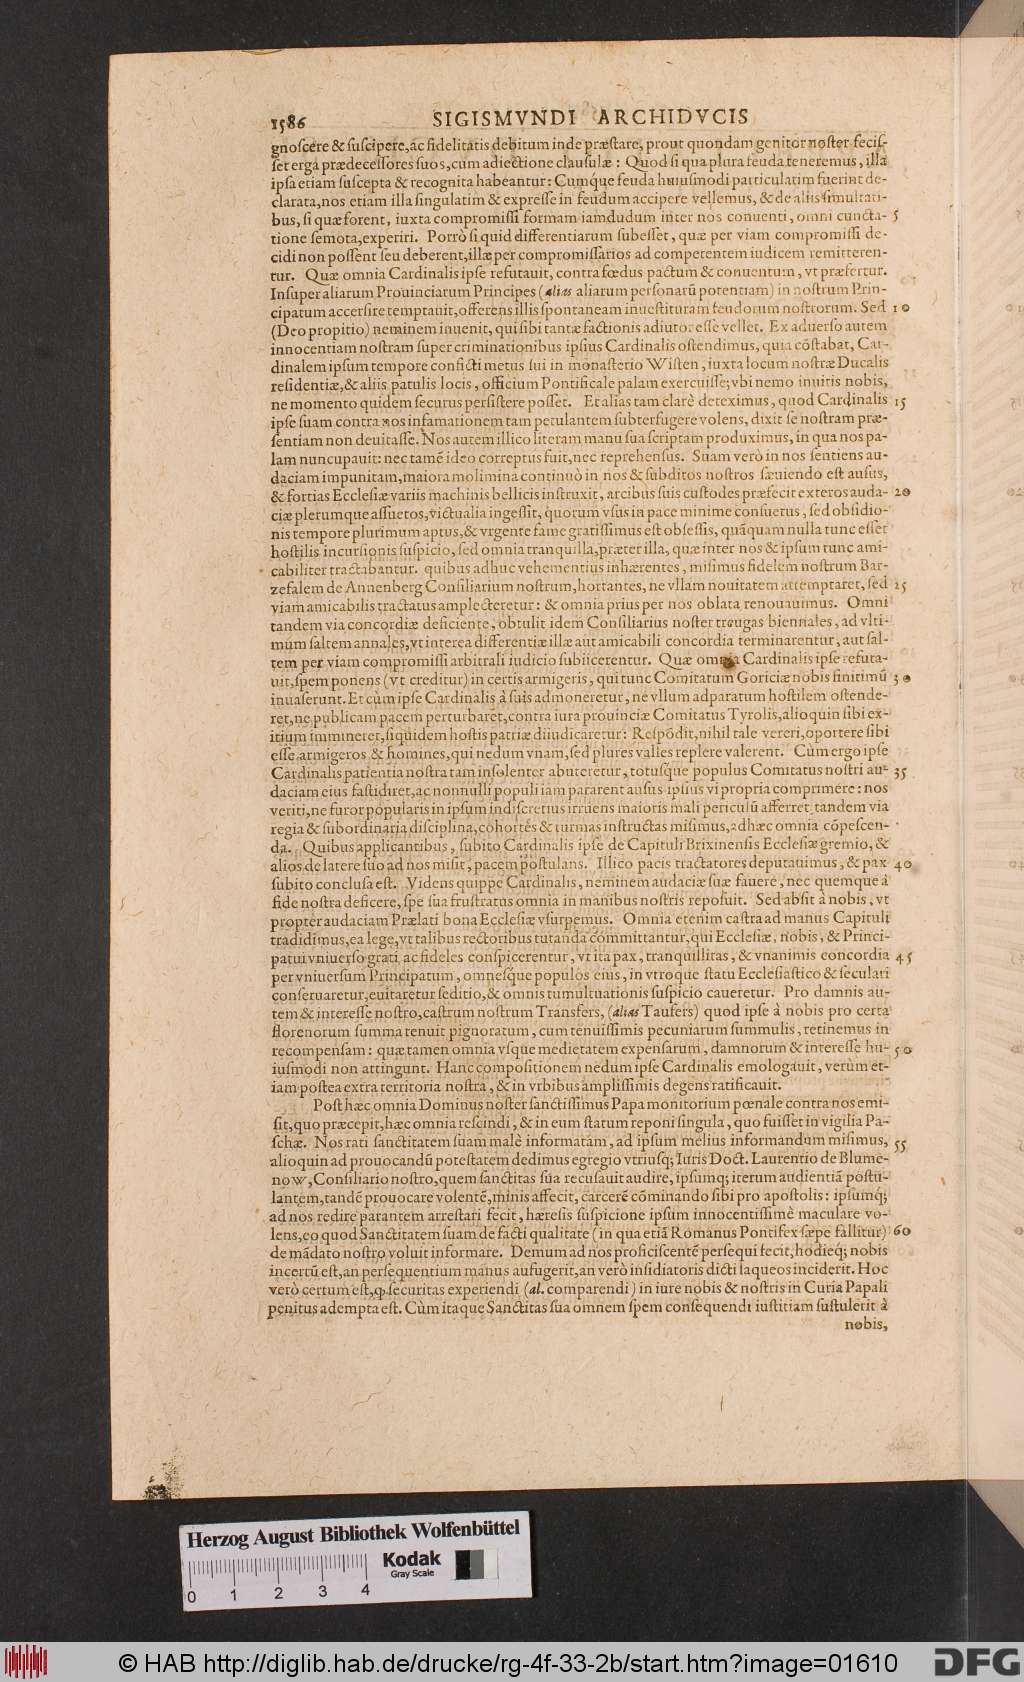 1586 SIGISMVNDI ARCHIDVCIS
gnoscere & suscipere, ac fidelitatis debitum inde præstare, prout quondam genitor noster fecis-
set erga prædecessores suos, cum adiectione clausulæ: Quod si qua plura feuda teneremus, illa
ipsa etiam suscepta & recognita habeantur: Cumque feuda huiusmodi particulatim fuerint de-
clarata, nos etiam illa singulatim & expresse in feudum accipere vellemus, & de aliis simultati-
bus, si quæ forent, iuxta compromissi formam iamdudum inter nos conuenti, omni cuncta- 5
tione semota, experiri. Porrò si quid differentiarum subesset, quæ per viam compromissi de-
cidi non possent seu deberent, illæ per compromissarios ad competentem iudicem remitteren-
tur. Quæ omnia Cardinalis ipse refutauit, contra fœdus pactum & conuentum, vt præfertur.
Insuper aliarum Prouinciarum Principes (alias aliarum personarū potentiam) in nostrum Prin-
cipatum accersire temptauit, offerens illis spontaneam inuestituram feudorum nostrorum. Sed 10
(Deo propitio) neminem inuenit, qui sibi tantæ factionis adiutor esse vellet. Ex aduerso autem
innocentiam nostram super criminationibus ipsius Cardinalis ostendimus, quia cōstabat, Car-
dinalem ipsum tempore conficti metus sui in monasterio Wisten, iuxta locum nostræ Ducalis
residentiæ, & aliis patulis locis, officium Pontificale palam exercuisse; vbi nemo inuitis nobis,
ne momento quidem securus persistere posset. Et alias tam clarè deteximus, quod Cardinalis 15
ipse suam contra nos infamationem tam petulantem subterfugere volens, dixit se nostram præ-
sentiam non deuitasse. Nos autem illico literam manu sua scriptam produximus, in qua nos pa-
lam nuncupauit: nec tamē ideo correptus fuit, nec reprehensus. Suam verò in nos sentiens au-
daciam impunitam, maiora molimina continuò in nos & subditos nostros sæuiendo est ausus,
& fortias Ecclesiæ variis machinis bellicis instruxit, arcibus suis custodes præfecit exteros auda- 20
ciæ plerumque assuetos, victualia ingessit, quorum vsus in pace minime consuetus, sed obsidio-
nis tempore plurimum aptus, & vrgente fame gratissimus est obsessis, quāquam nulla tunc esset
hostilis incursionis suspicio, sed omnia tranquilla, præter illa, quæ inter nos & ipsum tunc ami-
cabiliter tractabantur. quibus adhuc vehementius inhærentes, misimus fidelem nostrum Bar-
zefalem de Annenberg Consiliarium nostrum, hortantes, ne vllam nouitatem attemptaret, sed 25
viam amicabilis tractatus amplecteretur: & omnia prius per nos oblata renouauimus. Omni
tandem via concordiæ deficiente, obtulit idem Consiliarius noster treugas biennales, ad vlti-
mum saltem annales, vt interea differentiæ illæ aut amicabili concordia terminarentur, aut sal-
tem per viam compromissi arbitrali iudicio subiicerentur. Quæ omnia Cardinalis ipse refuta-
uit, spem ponens (vt creditur) in certis armigeris, qui tunc Comitatum Goriciæ nobis finitimū 30
inuaserunt. Et cùm ipse Cardinalis à suis admoneretur, ne vllum adparatum hostilem ostende-
ret, ne publicam pacem perturbaret, contra iura prouinciæ Comitatus Tyrolis, alioquin sibi ex-
itium immineret, siquidem hostis patriæ diiudicaretur: Respōdit, nihil tale vereri, oportere sibi
esse armigeros & homines, qui nedum vnam, sed plures valles replere valerent. Cùm ergo ipse
Cardinalis patientia nostra tam insolenter abuteretur, totusque populus Comitatus nostri au- 35
daciam eius fastidiret, ac nonnulli populi iam pararent ausus ipsius vi propria comprimere: nos
veriti, ne furor popularis in ipsum indiscretius irruens maioris mali periculū afferret, tandem via
regia & subordinaria disciplina, cohortes & turmas instructas misimus, ad hæc omnia cōpescen-
da. Quibus applicantibus, subito Cardinalis ipse de Capituli Brixinensis Ecclesiæ gremio, &
alios de latere suo ad nos misit, pacem postulans. Illico pacis tractatores deputauimus, & pax 40
subito conclusa est. Videns quippe Cardinalis, neminem audaciæ suæ fauere, nec quemque à
fide nostra deficere, spe sua frustratus omnia in manibus nostris reposuit. Sed absit à nobis, vt
propter audaciam Prælati bona Ecclesiæ vsurpemus. Omnia etenim castra ad manus Capituli
tradidimus, ea lege, vt talibus rectoribus tutanda committantur, qui Ecclesiæ, nobis, & Princi-
patui vniuerso grati ac fideles conspicerentur, vt ita pax, tranquillitas, & vnanimis concordia 45
per vniuersum Principatum, omnesque populos eius, in vtroque statu Ecclesiastico & seculari
conseruaretur, euitaretur seditio, & omnis tumultuationis suspicio caueretur. Pro damnis au-
tem & interesse nostro, castrum nostrum Transfers, (alias Taufers) quod ipse à nobis pro certa
florenorum summa tenuit pignoratum, cum tenuissimis pecuniarum summulis, retinemus in
recompensam: quæ tamen omnia vsque medietatem expensarum, damnorum & interesse hu- 50
iusmodi non attingunt. Hanc compositionem nedum ipse Cardinalis emologauit, verùm et-
iam postea extra territoria nostra, & in vrbibus amplissimis degens ratificauit.
Post hæc omnia Dominus noster sanctissimus Papa monitorium pœnale contra nos emi-
sit, quo præcepit, hæc omnia rescindi, & in eum statum reponi singula, quo fuisset in vigilia Pa-
schæ. Nos rati sanctitatem suam malè informatam, ad ipsum melius informandum misimus, 55
alioquin ad prouocandū potestatem dedimus egregio vtriusq; Iuris Doct. Laurentio de Blume-
now, Consiliario nostro, quem sanctitas sua recusauit audire, ipsumq; iterum audientiā postu-
lantem, tandē prouocare volentē, minis affecit, carcerē cōminando sibi pro apostolis: ipsumq;
ad nos redire parantem arrestari fecit, hæresis suspicione ipsum innocentissimè maculare vo-
lens, eo quod Sanctitatem suam de facti qualitate (in qua etiā Romanus Pontifex sæpe fallitur) 60
de mādato nostro voluit informare. Demum ad nos proficiscentē persequi fecit, hodieq; nobis
incertū est, an persequentium manus aufugerit, an verò insidiatoris dicti laqueos inciderit. Hoc
verò certum est, ꝙ securitas experiendi (al. comparendi) in iure nobis & nostris in Curia Papali
penitus adempta est. Cùm itaque Sanctitas sua omnem spem consequendi iustitiam sustulerit à
nobis,
Herzog August Bibliothek Wolfenbüttel
Kodak
Gray Scale
0 1 2 3 4
© HAB http://diglib.hab.de/drucke/rg-4f-33-2b/start.htm?image=01610
DFG